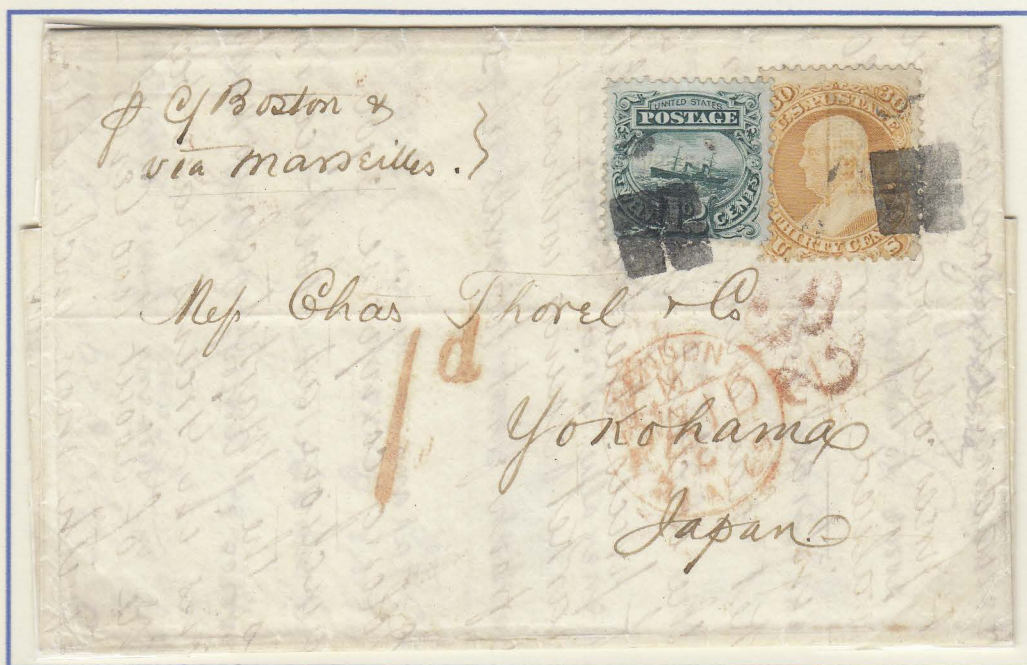 p C/ Boston &
via Marseilles.
UNITED STATES
POSTAGE
TWELVE 12 CENTS
30 30
U.S. POSTAGE
THIRTY CENTS
Mess Chas Thorel & Co
1d
LONDON
PAID
Yokohama
Japan